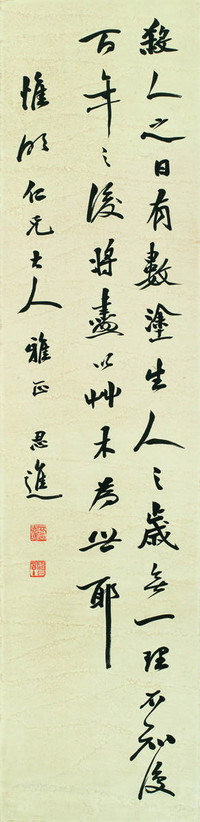 殺人之日有數塗生人之歲無一理不知
百年之後將盡以艸木為世耶
惟 仁兄大人 雅正 思進